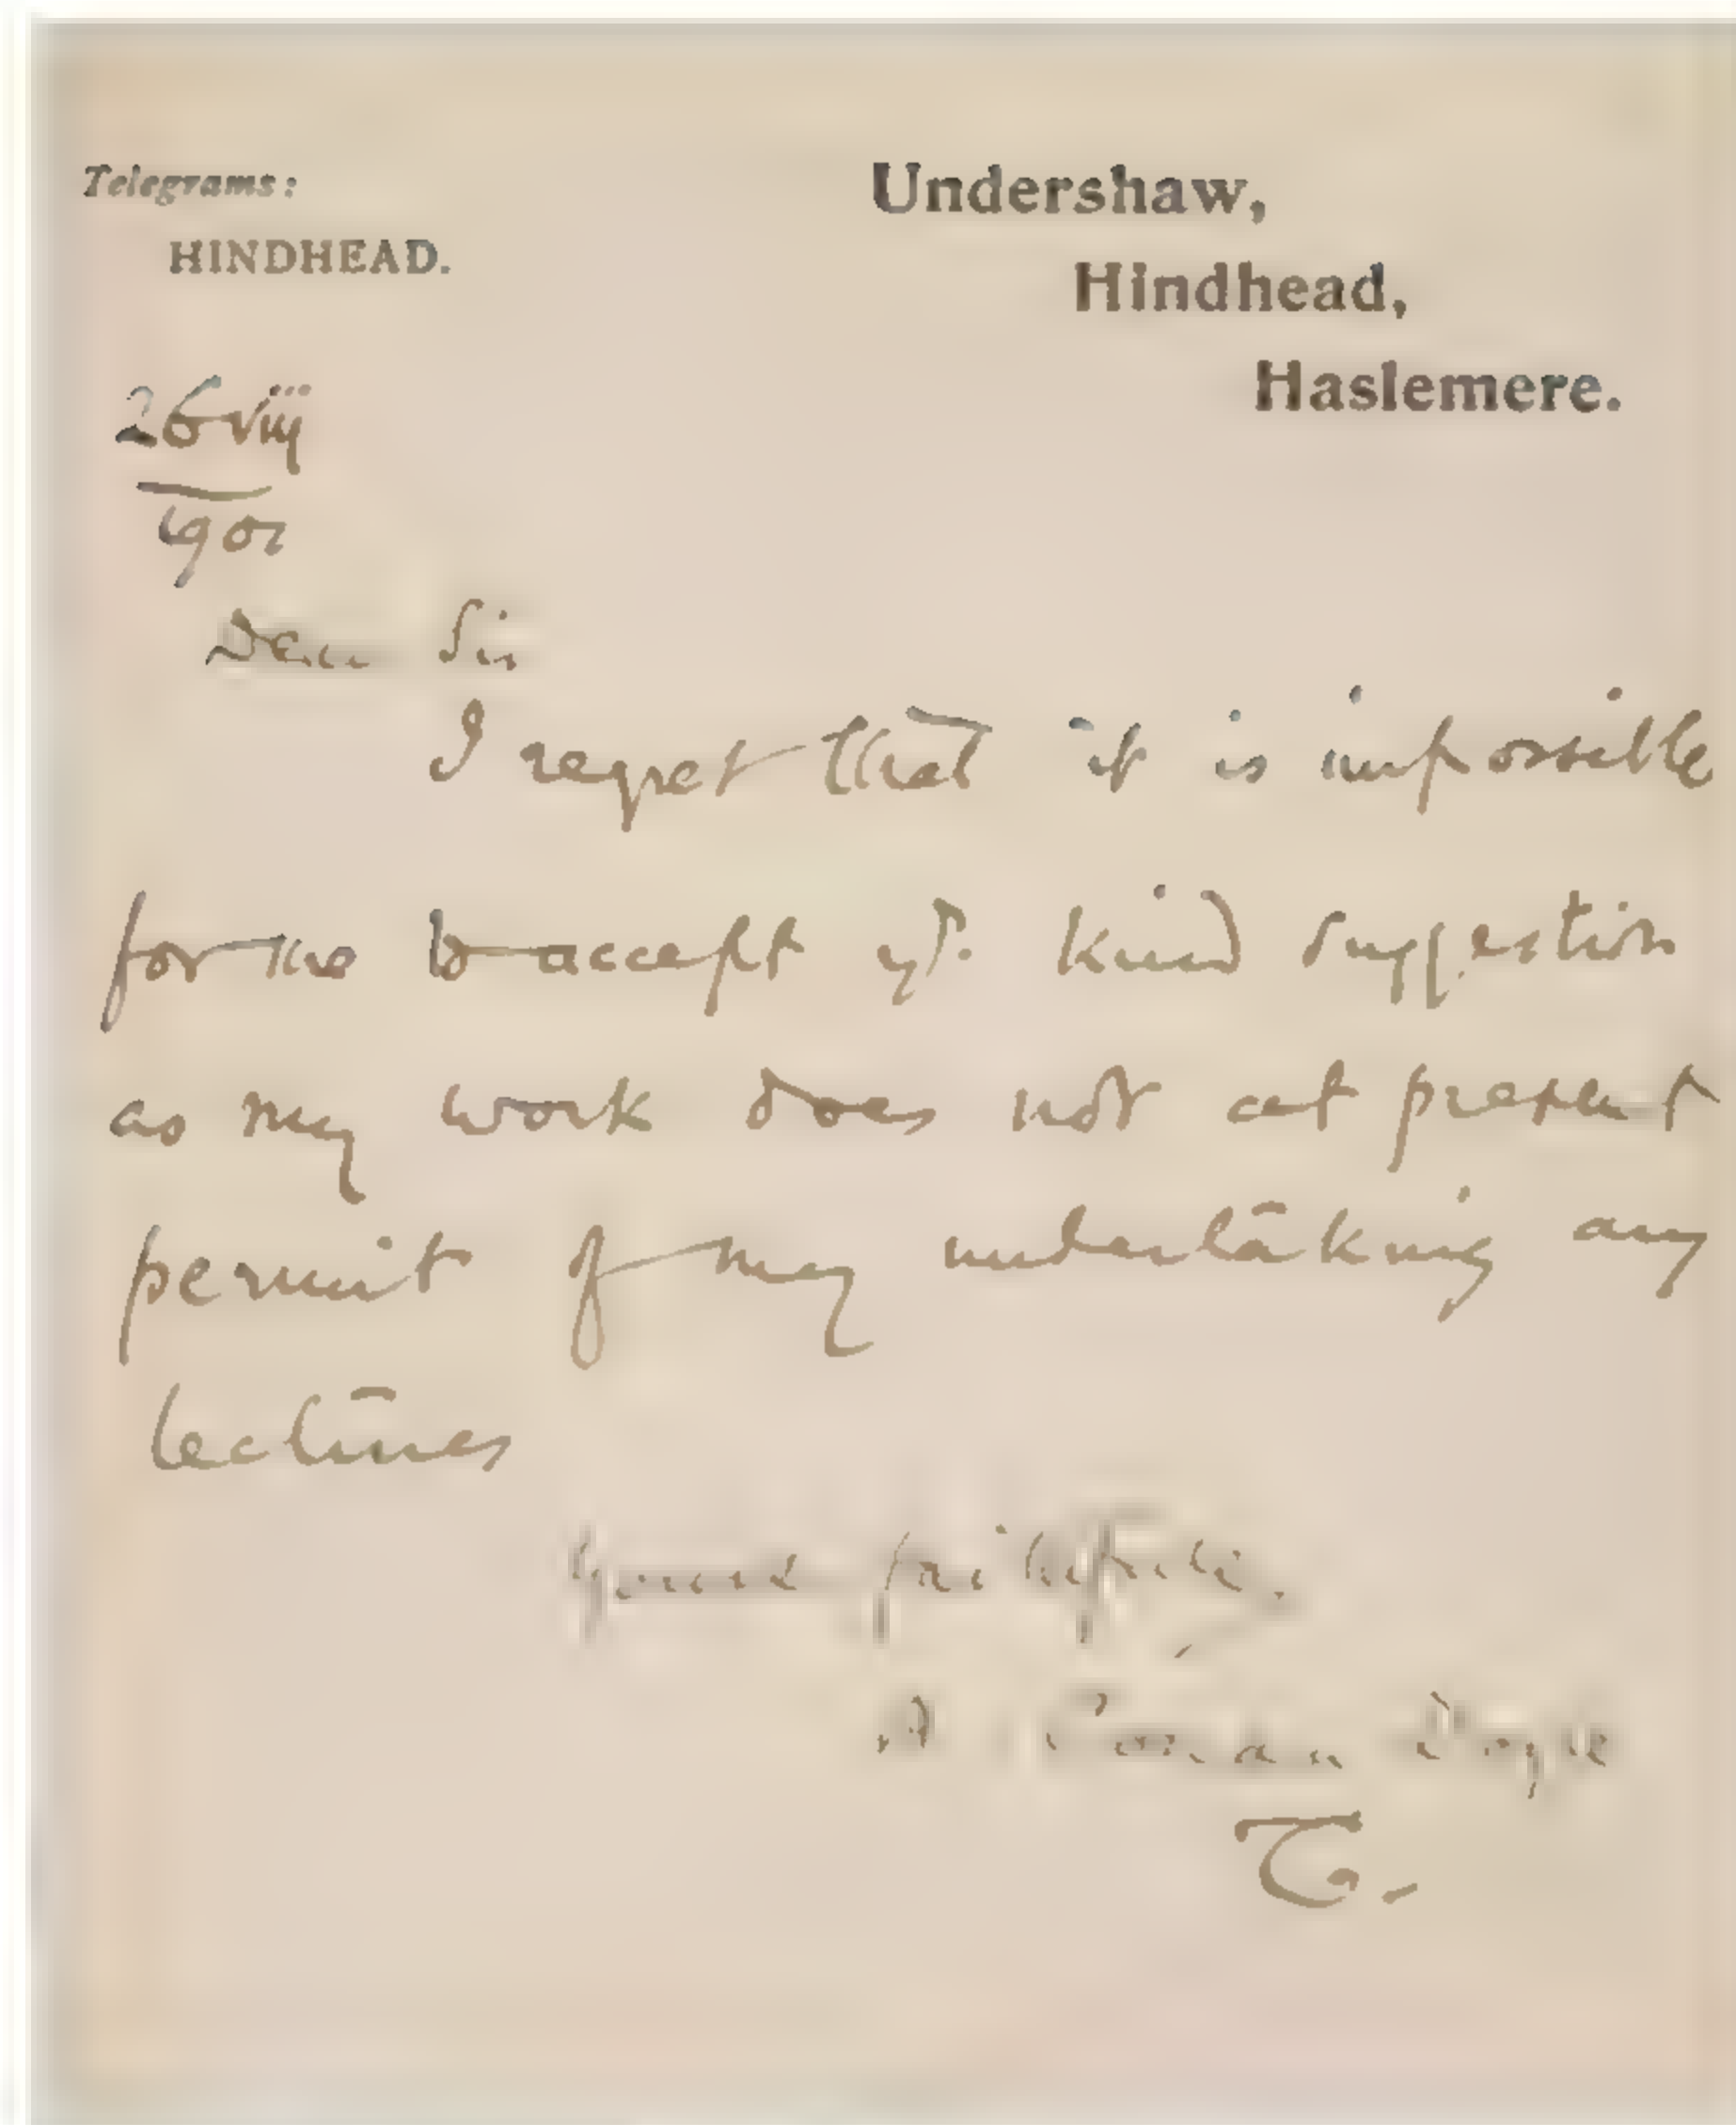 Telegrams:
HINDHEAD.
Undershaw,
Hindhead,
Haslemere.
26 viii
Dear Sir
I regret that it is impossible
for me to accept yr. kind suggestion
as my work does not at present
permit of my undertaking any
lectures
Yours faithfully
A Conan Doyle